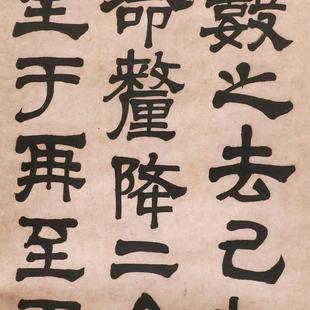 數之去己
命釐降二
至于再至